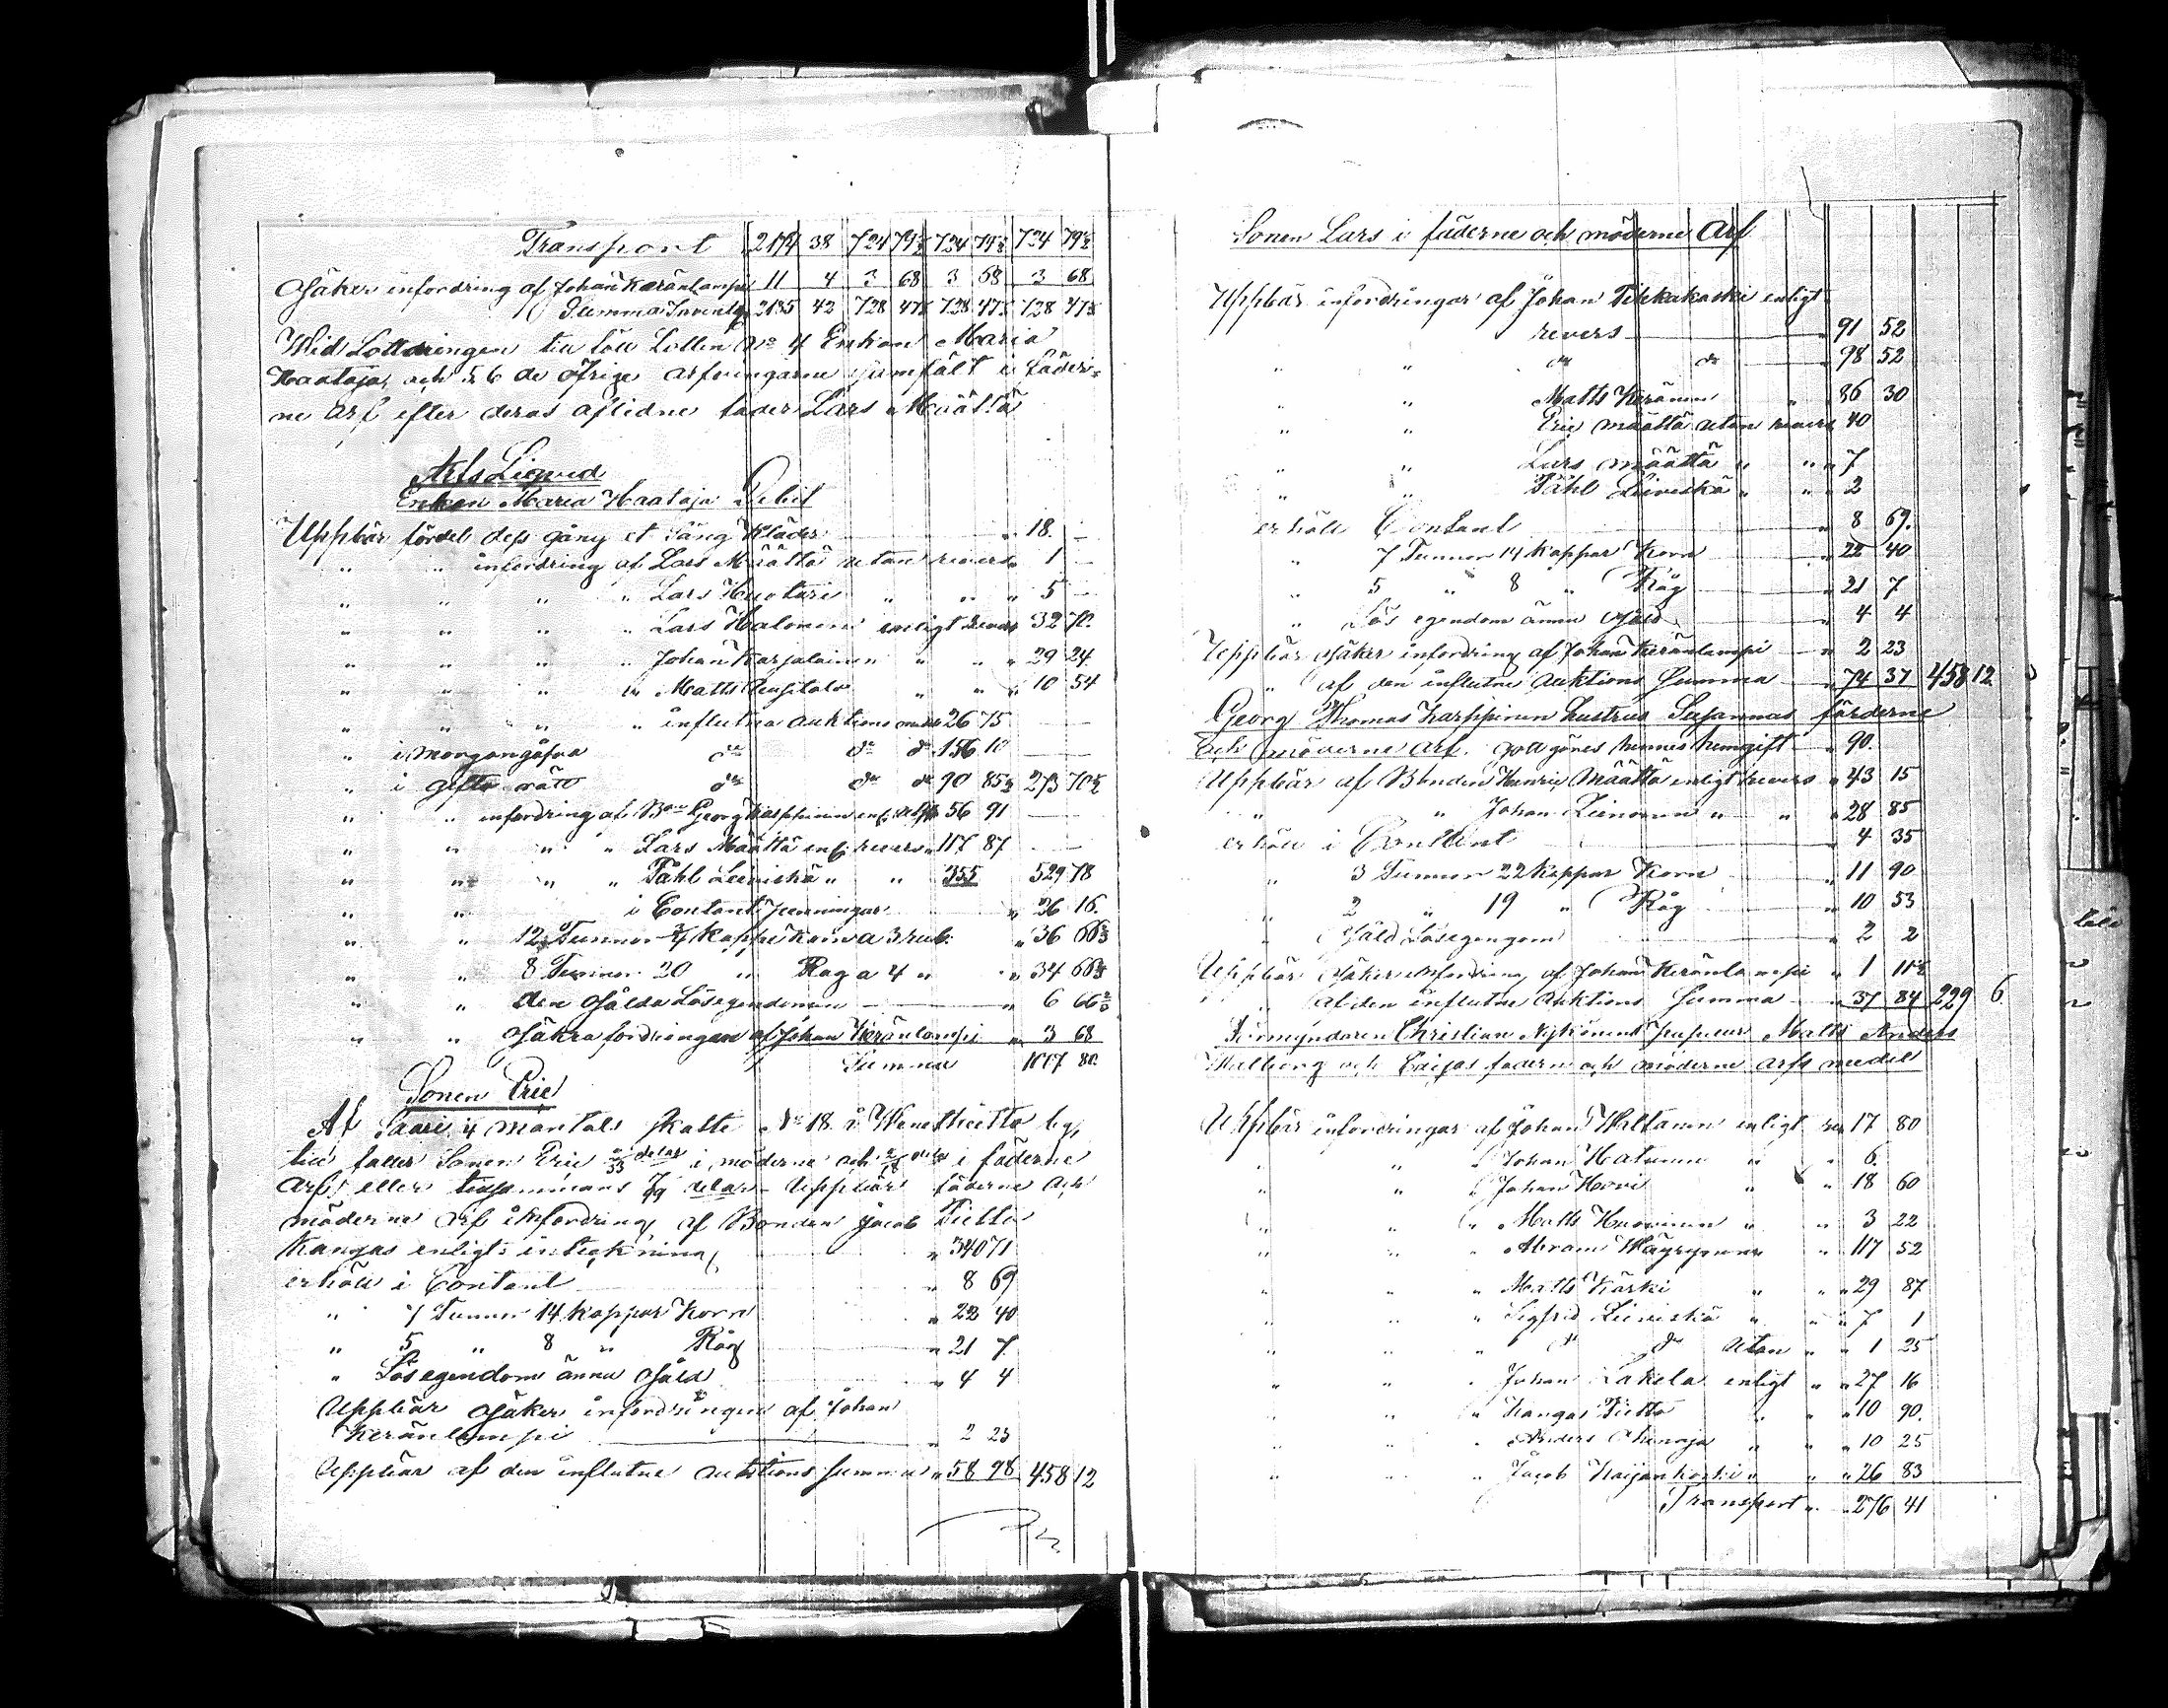 Transport 2174 38 724 79½ 724 79½ 724 79½
Osäker infordring af Johan Keränlampi 11 4 3 68 3 68 3 68
Summa Invent. 2185 42 728 47½ 728 47½ 728 47½
Wid Lottningen till föll Lotten No 4 Enkan Maria
Haataja, och 5. 6 de öfrige arfvingarne jämfält i fäder-
ne arf efter deras aflidne fader Lars Määttä
Arfs Liqvid
Enkan Maria Haataja Debit
Uppbär fördel dess gång et säng kläder " 18. –
" " infordring af Lars Määttä utan revers " 1 –
" " " " Lars Huotari " " " 5 –
" " " " Lars Halonen enligt revers 32 70.
" " " " Johan Karjalainen " " " 29 24
" " " " Matts " " " 10 54
" " " " influtna auktions medel 26 75 – –
" i morgongåfva do do do 156 10 – –
" i gifto rätt do do do 90 85½ 273 70½
" " infordring af Bon Georg Karppinen enl. 56 91 – –
" " " " Lars Määttä enl. revers " 117 87 – –
" " " " Påhl Leiviskä " " 355 529 78
" " i Contant penningar " 26 16.
" " 12 Tunnor kappe korn a 3 rub. " 36 66⅔
" " 8 Tunnor 20 " Rag a 4 " " 34 66⅔
" " den osålda Lösegendomen " 6 66⅔
" " osäkra fordringen af Johan Keränlampi " 3 68
Summa 1007 80.
Sonen Eric
Af Saari ¼ mantals skatte No 18 i Wenetheitto by,
till faller Sonen Eric delar i möderne och delar i fäderne
arf eller tillsammans delar. Uppbär fäderne och
möderne arf infordring af Bonden Jacob Tietto
Kangas enligt inteckning " 340 71
erhåll i Contant " 8 69
" 7 Tunnor 14 kappar Korn " 22 40
" 5 " 8 " Råg " 21 7
" Lösegendom ännu osåld " 4 4
Uppbär osäker infordringen af Johan
Keränlampi " 2 23
Uppbär af den influtne auktions summa " 58 98 458 12
Sonen Lars i fäderne och möderne Arf
Uppbär infordringar af Johan enligt
revers " 91 52
" " do do " 98 52
" " Matts Keränen " " 86 30
" " Eric Määttä utan revers 40
" " Lars Määttä " " " 7
" " Påhl Leiviskä " " " 2
erhåll Contant " 8 69.
" 7 Tunnor 14 kappar Korn " 22 40
" 5 " 8 " Råg " 21 7
" Lös egendom ännu osåld " 4 4
Uppbär osäker infordring af Johan Keränlampi " 2 23
" af den influtne auktions summa " 74 37 458 12
Georg Thomas Karppinen hustrus Susannas fäderne
och möderne arf. godt göres hennes hemgift " 90.
Uppbär af Bonden Henric Määttä enligt revers " 43 15
" " Johan Leinonen " " " 28 85
erhåll i Content " 4 35
" 3 Tunnor 22 kappar Korn " 11 90
" 2 " 19 " Råg " 10 53
" Osåld Lösegengom " 2 2
Uppbär osäker infordring af Johan Keränlampi " 1 11½
" af den influtne Auktions Summa " 37 84 229 6.
Förmyndaren Christian Nykänens pupiller Matts Anders
Walborg och Caijsas fadern och möderne arfs medel
Uppbär infordringar af Johan Waltanen enligt rev 17 80
" " " Johan Hatunen " " 6.
" " " Johan Hovi " " 18 60
" " " Matts Huovinen " " 3 22
" " " Abram Wäyrynen " " 117 52
" " " Matts Karski " " " 29 87
" " " Sigfrid Leiviskä " " " 7 1
" " " do do utan " " 1 25
" " " Johan Lakela enligt " " 27 16
" " " Kangas Tietto " " " 10 90.
" " " Anders " " " 10 25
" " " Jacob " " " 26 83
Transport " " 276 41